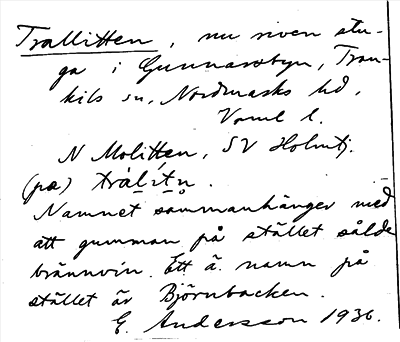 Trallitten, nu riven stu-
ga i Gunnarsbyn, Tran-
kils sn, Nordmarks hd,
Verml l.
N Molitten, SV Holmtj.
(pa) trál-ìtn̥.
Namnet sammanhänger med
att gumman på stället sålde
brännvin. Ett a. namn på
stället är Björnbacken.
E. Andersson 1936.